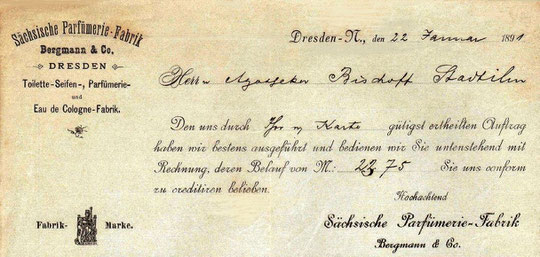 Sächsische Parfümerie-Fabrik
Bergmann & Co.
DRESDEN
Toilette-Seifen-, Parfümerie-
und
Eau de Cologne-Fabrik.
Dresden-N., den 22 Januar 1891
Herrn Apotheker Bischoff Stadtilm
Den uns durch Ihre Karte gütigst ertheilten Auftrag
haben wir bestens ausgeführt und bedienen wir Sie untenstehend mit
Rechnung, deren Belauf von M.: 22.75 Sie uns conform
zu creditiren belieben.
Hochachtend
Sächsische Parfümerie-Fabrik
Bergmann & Co.
Fabrik- Marke.